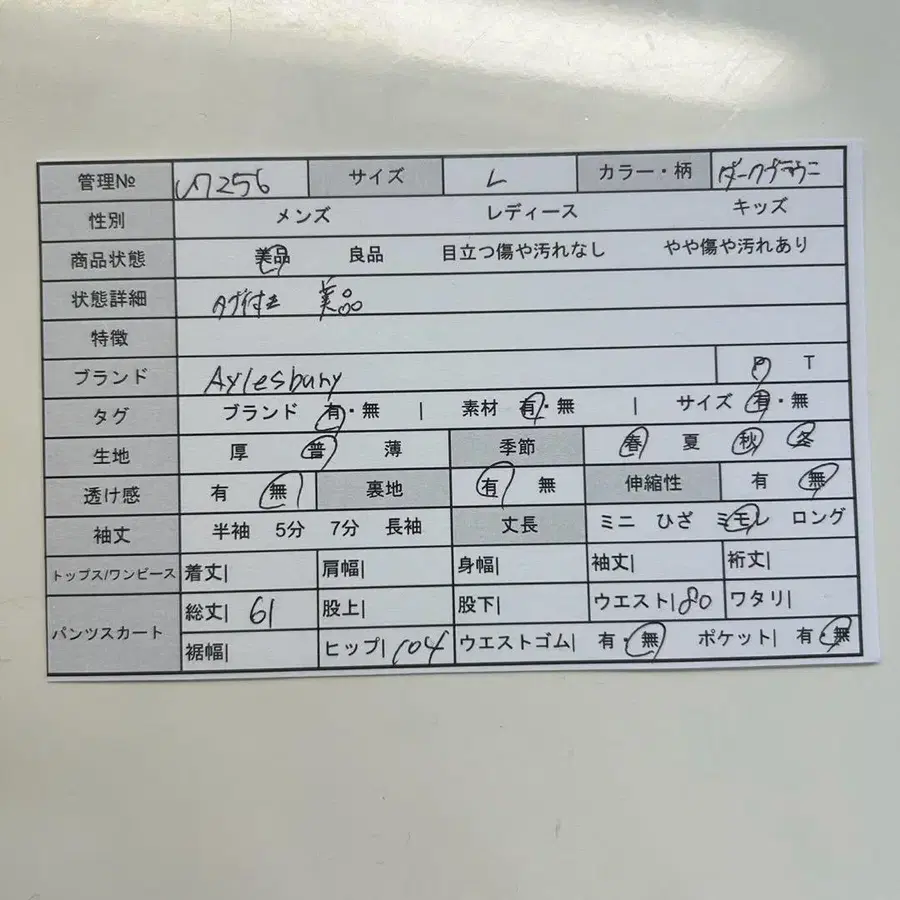 管理№ サイズ L カラー・柄 ダークブラウン
性別 メンズ レディース キッズ
商品状態 美品 良品 目立つ傷や汚れなし やや傷や汚れあり
状態詳細 タグ付き 美品
特徴
ブランド Aylesbury T
タグ ブランド 有・無 | 素材 有・無 | サイズ 有・無
生地 厚 普 薄 季節 春 夏 秋 冬
透け感 有 無 裏地 有 無 伸縮性 有 無
袖丈 半袖 5分 7分 長袖 丈長 ミニ ひざ ミモレ ロング
トップス/ワンピース 着丈| 肩幅| 身幅| 袖丈| 裄丈|
パンツスカート 総丈| 61 股上| 股下| ウエスト| 80 ワタリ|
裾幅| ヒップ| 104 ウエストゴム| 有・無 ポケット| 有・無